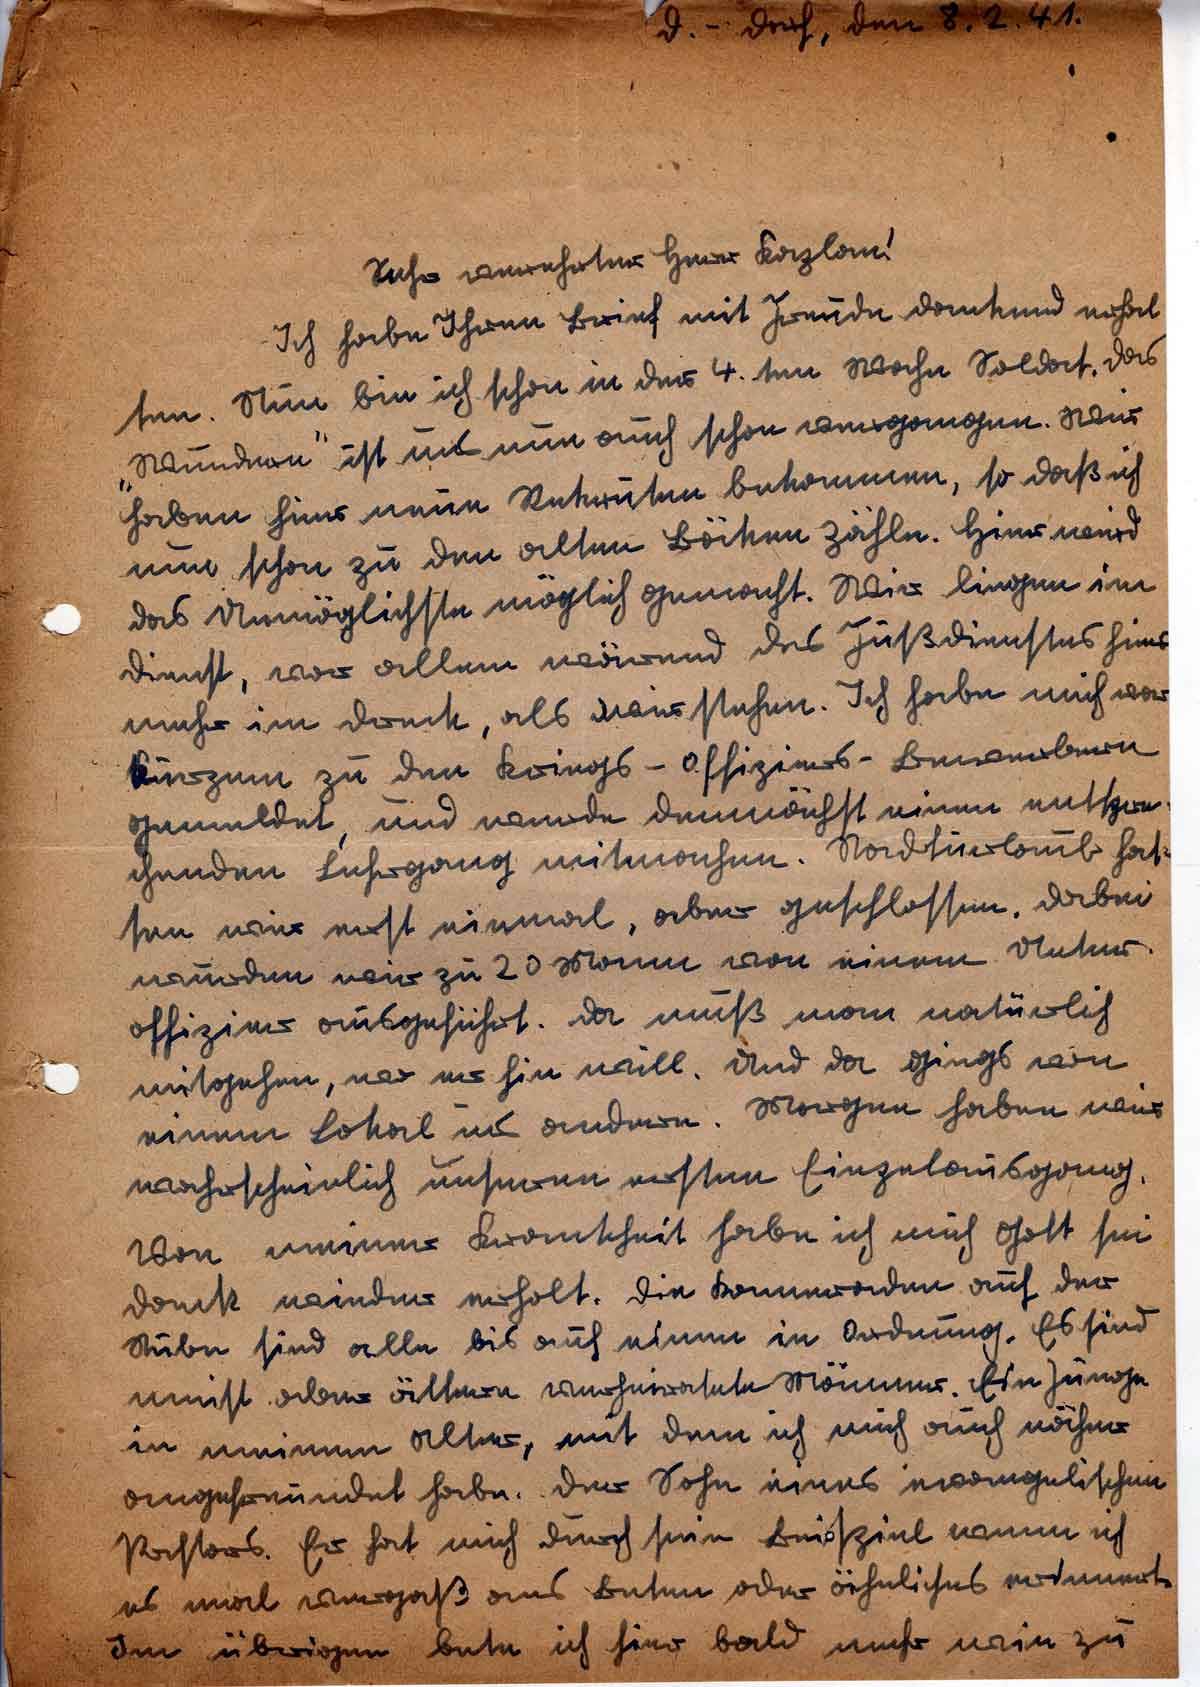 D.-dorf, den 8.2.41.
Sehr verehrter Herr Kaplan!
Ich habe Ihren Brief mit Freude dankend erhal
ten. Nun bin ich schon in der 4. ten Woche Soldat. Das
„Wundern" ist uns nun auch schon vergangen. Wir
haben hier neue Rekruten bekommen, so daß ich
nun schon zu den alten Böcken zähle. Hier wird
das Unmöglichste möglich gemacht. Wir liegen im
Dienst, vor allem wärend des Fußdienstes hier
mehr im Dreck, als wir stehen. Ich habe mich vor
kurzem zu den Kriegs-Offiziers-Bewerbern
gemeldet, und werde demnächst einen entspre-
chenden Lehrgang mitmachen. Stadturlaub hat-
ten wir erst einmal, aber geschlossen. Dabei
wurden wir zu 20 Mann von einem Unter-
offizier ausgeführt. Da muß man natürlich
mitgehen, wo er hin will. Und da gings von
einem Lokal ins andere. Morgen haben wir
wahrscheinlich unseren ersten Einzelausgang.
Von meiner Krankheit habe ich mich Gott sei
dank wieder erholt. Die Kameraden auf der
Stube sind alle bis auf einen in Ordnung. Es sind
meist aber ältere verheiratete Männer. Ein Junge
in meinem Alter, mit dem ich mich auch näher
angefreundet habe. Der Sohn eines evangelischen
Pastors. Er hat mich durch sein Beispiel wenn ich
es mal vergaß ans Beten oder ähnliches erinnert.
Im übrigen bete ich hier bald mehr wie zu